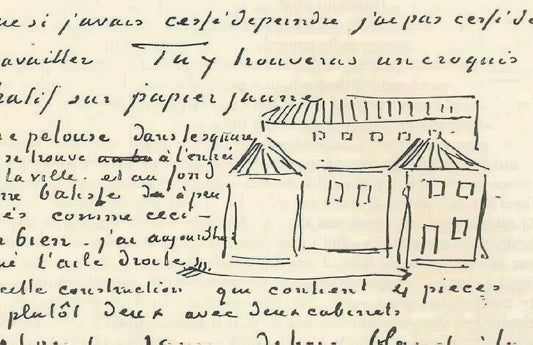 si j'avais cessé de peindre j'ai pas cessé de
travailler Tu y trouveras un croquis
hatif sur papier jaune
pelouse dans le square
se trouve à l'entrée
la ville. et au fond
batisse à peu
comme ceci –
bien – j'ai aujourdhui
l'aile droite
cette construction qui contient 4 pieces
plutôt deux avec deux cabinets